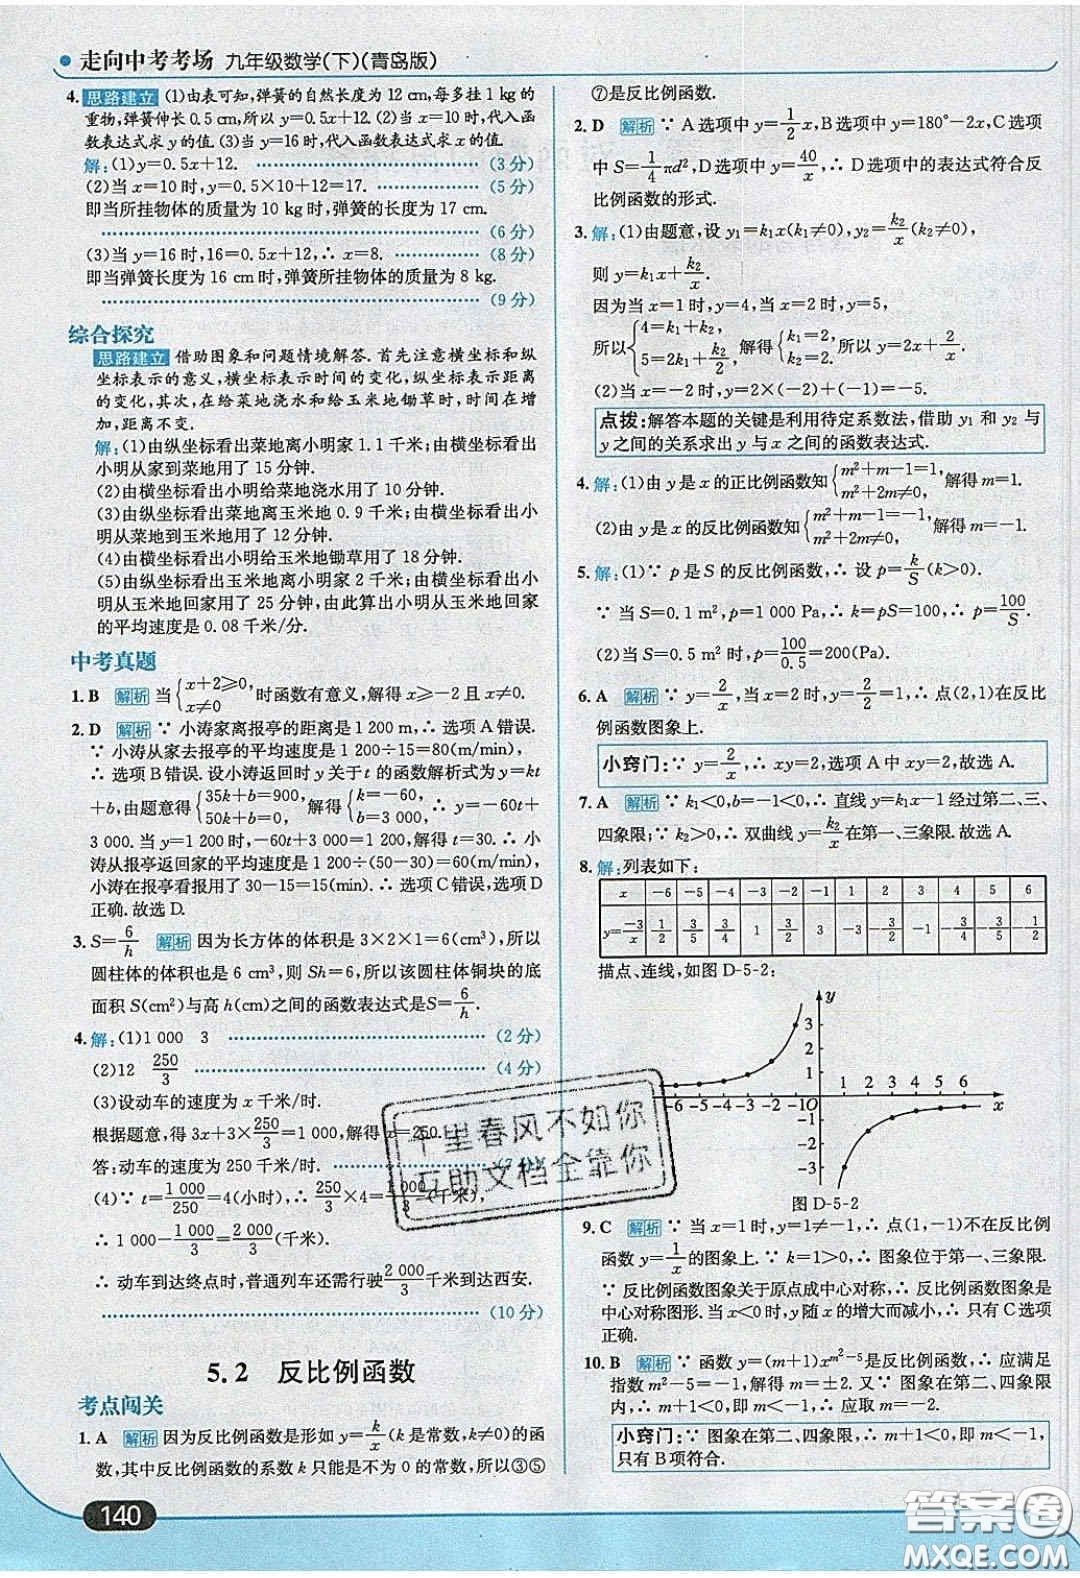 走向中考考场 九年级数学(下)(青岛版)
4. 思路建立 (1)由表可知,弹簧的自然长度为 12 cm,每多挂 1 kg 的
重物,弹簧伸长 0.5 cm,所以 y=0.5x+12. (2)当 x=10 时,代入函
数表达式求 y 的值. (3)当 y=16 时,代入函数表达式求 x 的值.
解:(1)y=0.5x+12. (3 分)
(2)当 x=10 时,y=0.5×10+12=17. (5 分)
即当所挂物体的质量为 10 kg 时,弹簧的长度为 17 cm.
(6 分)
(3)当 y=16 时,16=0.5x+12,∴ x=8. (8 分)
即当弹簧长度为 16 cm 时,弹簧所挂物体的质量为 8 kg.
(9 分)
综合探究
思路建立 借助图象和问题情境解答. 首先注意横坐标和纵
坐标表示的意义,横坐标表示时间的变化,纵坐标表示距离
的变化,其次,在给菜地浇水和给玉米地锄草时,时间在增
加,距离不变.
解:(1)由纵坐标看出菜地离小明家 1.1 千米;由横坐标看出
小明从家到菜地用了 15 分钟.
(2)由横坐标看出小明给菜地浇水用了 10 分钟.
(3)由纵坐标看出菜地离玉米地 0.9 千米;由横坐标看出小
明从菜地到玉米地用了 12 分钟.
(4)由横坐标看出小明给玉米地锄草用了 18 分钟.
(5)由纵坐标看出玉米地离小明家 2 千米;由横坐标看出小
明从玉米地回家用了 25 分钟,由此算出小明从玉米地回家
的平均速度是 0.08 千米/分.
中考真题
1. B 解析 当{x+2≥0, x≠0 时函数有意义,解得 x≥-2 且 x≠0.
2. D 解析 ∵ 小涛家离报亭的距离是 1 200 m,∴ 选项 A 错误.
∵ 小涛从家去报亭的平均速度是 1 200÷15=80(m/min),
∴ 选项 B 错误. 设小涛返回时 y 关于 t 的函数解析式为 y=kt
+b,由题意得{35k+b=900, 50k+b=0, 解得{k=-60, b=3 000, ∴ y=-60t+
3 000. 当 y=1 200 时,-60t+3 000=1 200,解得 t=30. ∴ 小
涛从报亭返回家的平均速度是 1 200÷(50-30)=60(m/min),
小涛在报亭看报用了 30-15=15(min). ∴ 选项 C 错误,选项 D
正确. 故选 D.
3. S=6/h 解析 因为长方体的体积是 3×2×1=6(cm³),所以
圆柱体的体积也是 6 cm³,则 Sh=6,所以该圆柱体铜块的底
面积 S(cm²)与高 h(cm)之间的函数表达式是 S=6/h.
4. 解:(1)1 000 3 (2 分)
(2)12 250/3 (4 分)
(3)设动车的速度为 x 千米/时.
根据题意,得 3x+3×250/3=1 000,解得 x=250.
答:动车的速度为 250 千米/时. (7 分)
(4)∵ t=1 000/250=4(小时),∴ 250/3×4=1 000/3(千米),
∴ 1 000-1 000/3=2 000/3(千米).
∴ 动车到达终点时,普通列车还需行驶2 000/3千米到达西安.
(10 分)
5.2 反比例函数
考点闯关
1. A 解析 因为反比例函数是形如 y=k/x(k 是常数,k≠0)的函
数,其中反比例函数的系数 k 只能是不为 0 的常数,所以③⑤
⑦是反比例函数.
2. D 解析 ∵ A 选项中 y=1/2x,B 选项中 y=180°-2x,C 选项
中 S=1/4πd²,D 选项中 y=40/x,∴ D 选项中的表达式符合反
比例函数的形式.
3. 解:(1)由题意,设 y₁=k₁x(k₁≠0),y₂=k₂/x(k₂≠0),
则 y=k₁x+k₂/x.
因为当 x=1 时,y=4,当 x=2 时,y=5,
所以{4=k₁+k₂, 5=2k₁+k₂/2, 解得{k₁=2, k₂=2. 所以 y=2x+2/x.
(2)当 x=-2 时,y=2×(-2)+(-1)=-5.
点拨:解答本题的关键是利用待定系数法,借助 y₁ 和 y₂ 与
y 之间的关系求出 y 与 x 之间的函数表达式.
4. 解:(1)由 y 是 x 的正比例函数知{m²+m-1=1, m²+2m≠0, 解得 m=1.
(2)由 y 是 x 的反比例函数知{m²+m-1=-1, m²+2m≠0, 解得 m=-1.
5. 解:(1)∵ p 是 S 的反比例函数,∴ 设 p=k/S(k>0).
∵ 当 S=0.1 m²,p=1 000 Pa,∴ k=pS=100,∴ p=100/S.
(2)当 S=0.5 m² 时,p=100/0.5=200(Pa).
6. A 解析 ∵ y=2/x,当 x=2 时,y=2/2=1,∴ 点(2,1)在反比
例函数图象上.
小窍门:∵ y=2/x,∴ xy=2,选项 A 中 xy=2,故选 A.
7. A 解析 ∵ k₁<0,b=-1<0,∴ 直线 y=k₁x-1 经过第二、三、
四象限;∵ k₂>0,∴ 双曲线 y=k₂/x 在第一、三象限. 故选 A.
8. 解:列表如下:
x -6 -5 -4 -3 -2 -1 1 2 3 4 5 6
y=-3/x 1/2 3/5 3/4 1 3/2 3 -3 -3/2 -1 -3/4 -3/5 -1/2
描点、连线,如图 D-5-2:
y
3
2
1
-6 -5 -4 -3 -2 -1O 1 2 3 4 5 6 x
-1
-2
-3
图 D-5-2
9. C 解析 ∵ 当 x=1 时,y=1≠-1,∴ 点(1,-1)不在反比例
函数 y=1/x 的图象上. ∵ k=1>0,∴ 图象位于第一、三象限.
∵ 反比例函数图象关于原点成中心对称,∴ 反比例函数图象是
中心对称图形. 当 x<0 时,y 随 x 的增大而减小,∴ 只有 C 选项
正确.
10. B 解析 ∵ 函数 y=(m+1)x^(m²-5)是反比例函数,∴ 应满足
指数 m²-5=-1,解得 m=±2. 又∵ 图象在第二、四象限
内,∴ m+1<0,即 m<-1,∴ 应取 m=-2.
小窍门:∵ 图象在第二、四象限,∴ m+1<0,即 m<-1,
只有 B 项符合.
140
千里春风不如你
互助文档全靠你
答案圈
MXQE.COM